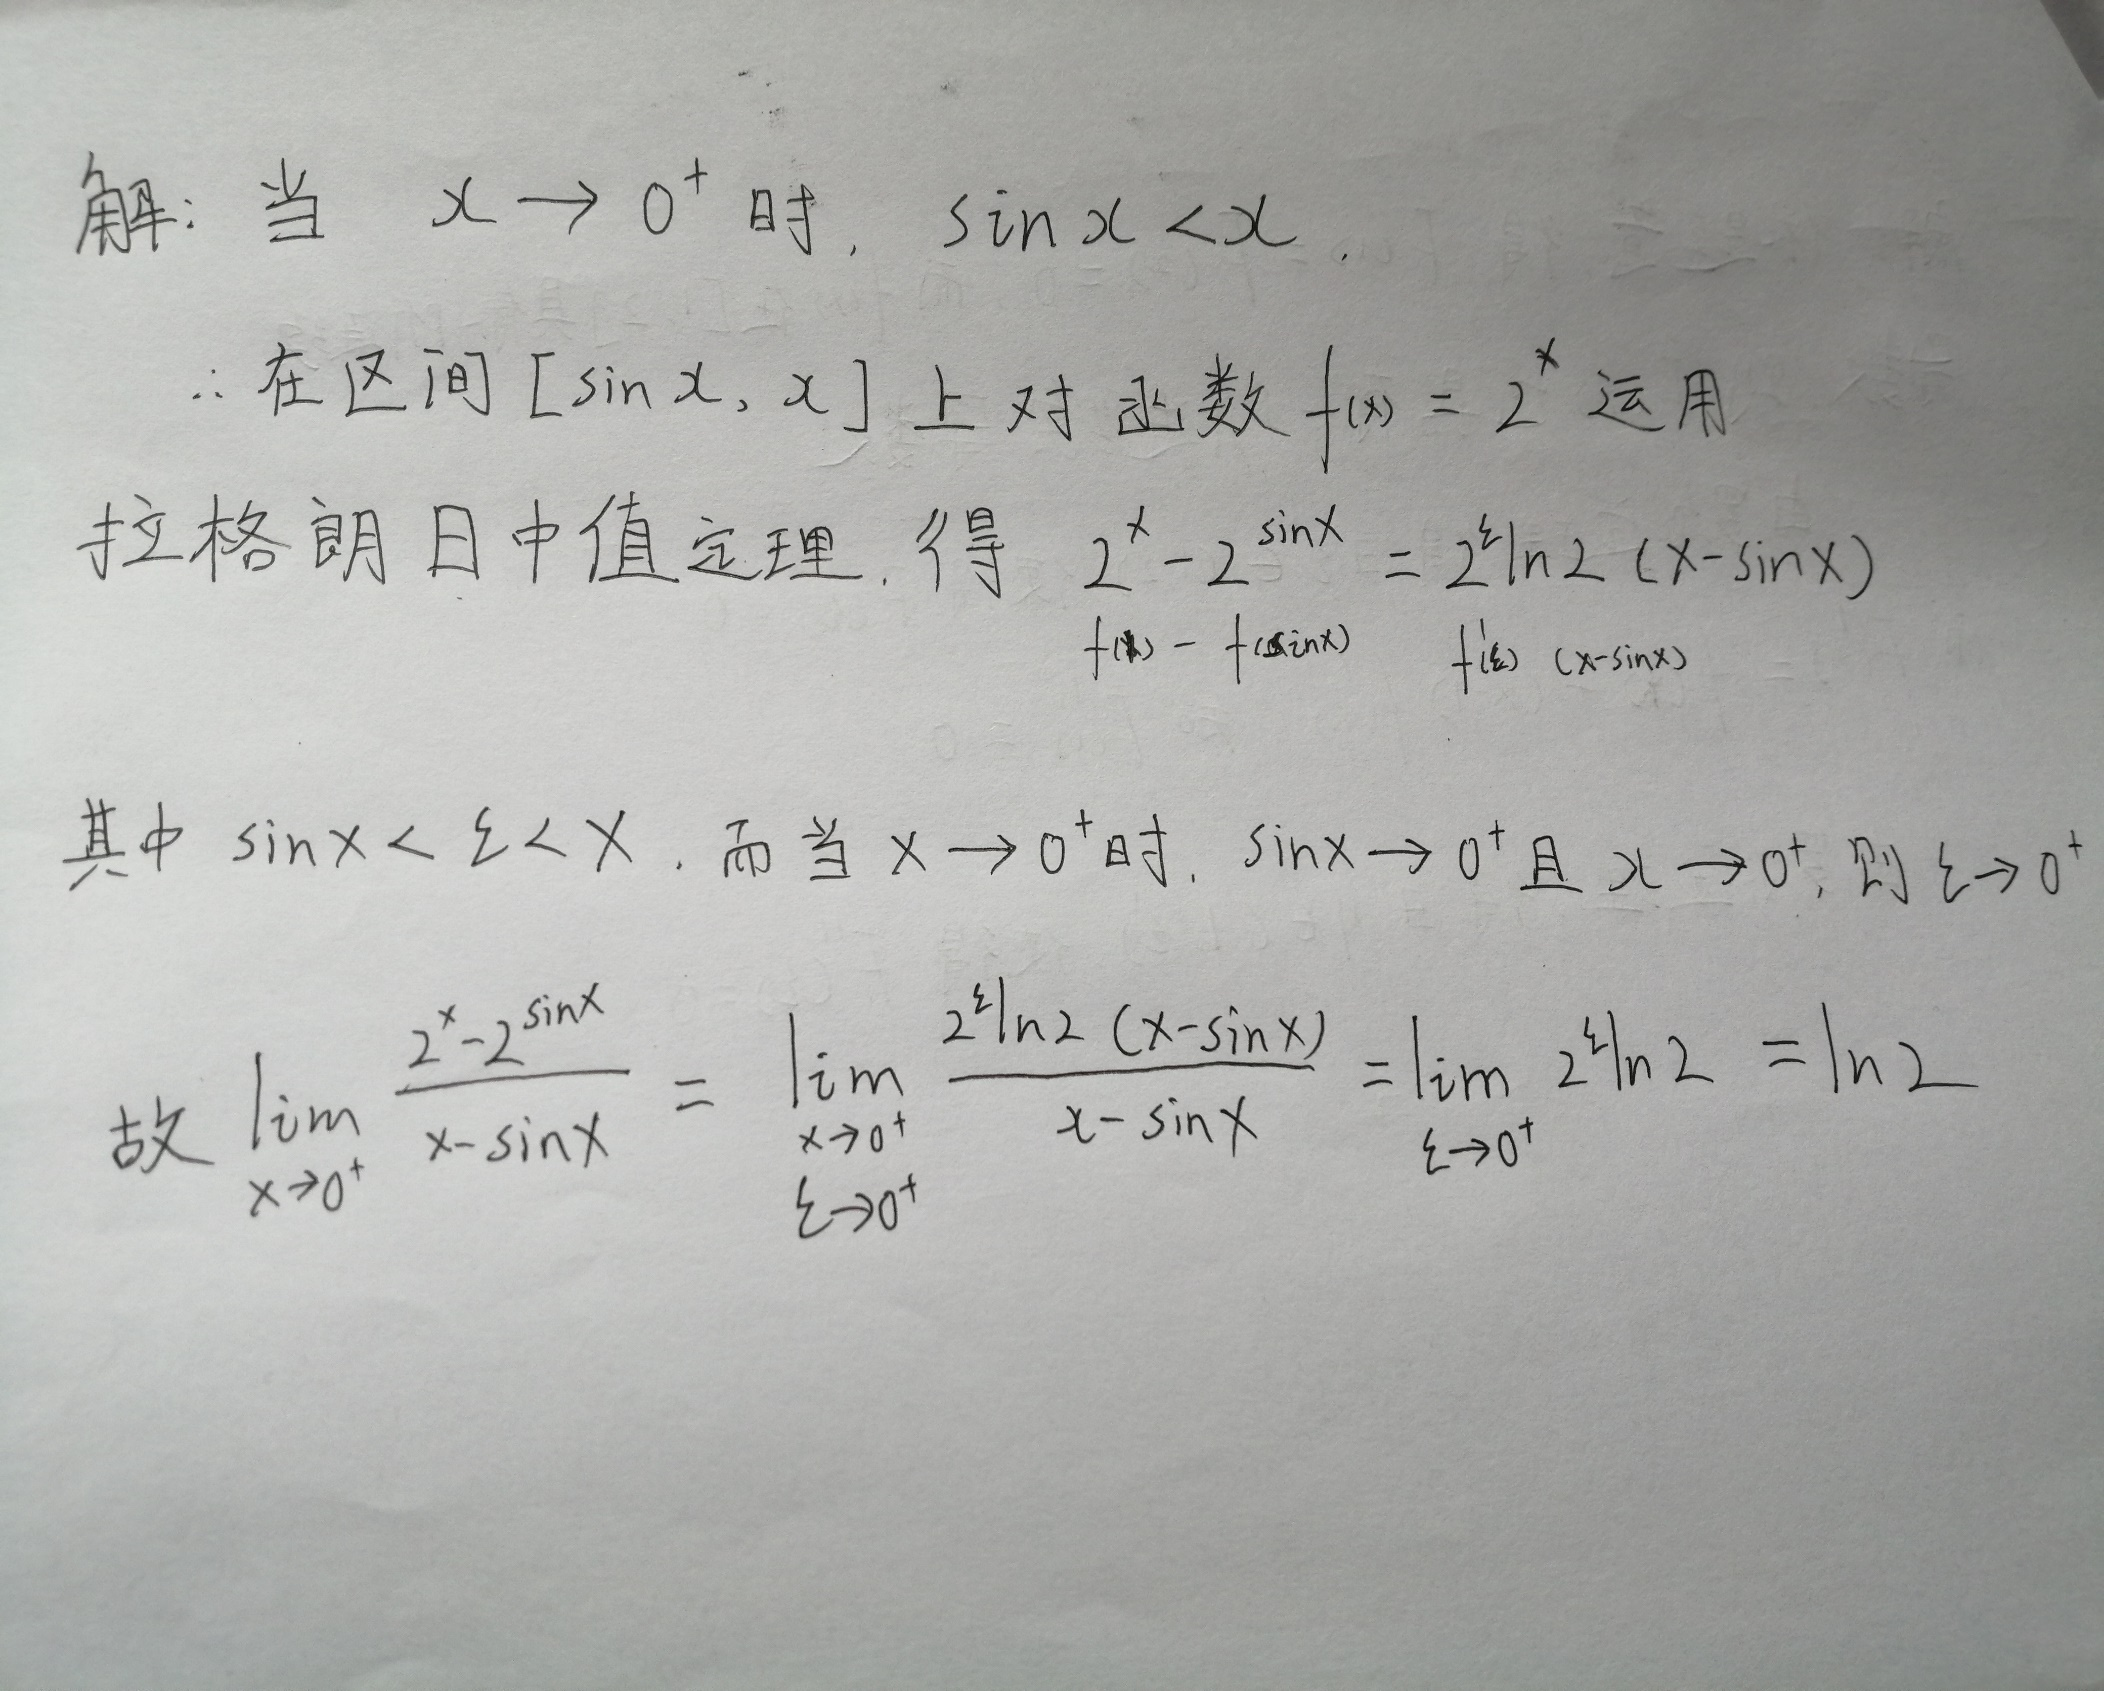 解: 当 x→0⁺时, sinx<x.
∴在区间[sinx, x]上对函数f(x)=2ˣ运用
拉格朗日中值定理, 得 2^x-2^sinx = 2^ξ ln2 (x-sinx)
f(x) - f(sinx) f'(ξ) (x-sinx)
其中 sinx<ξ<x. 而当x→0⁺时, sinx→0⁺且x→0⁺, 则ξ→0⁺
故 lim_{x→0⁺} (2^x-2^sinx)/(x-sinx) = lim_{x→0⁺ ξ→0⁺} (2^ξ ln2 (x-sinx))/(x-sinx) = lim_{ξ→0⁺} 2^ξ ln2 = ln2